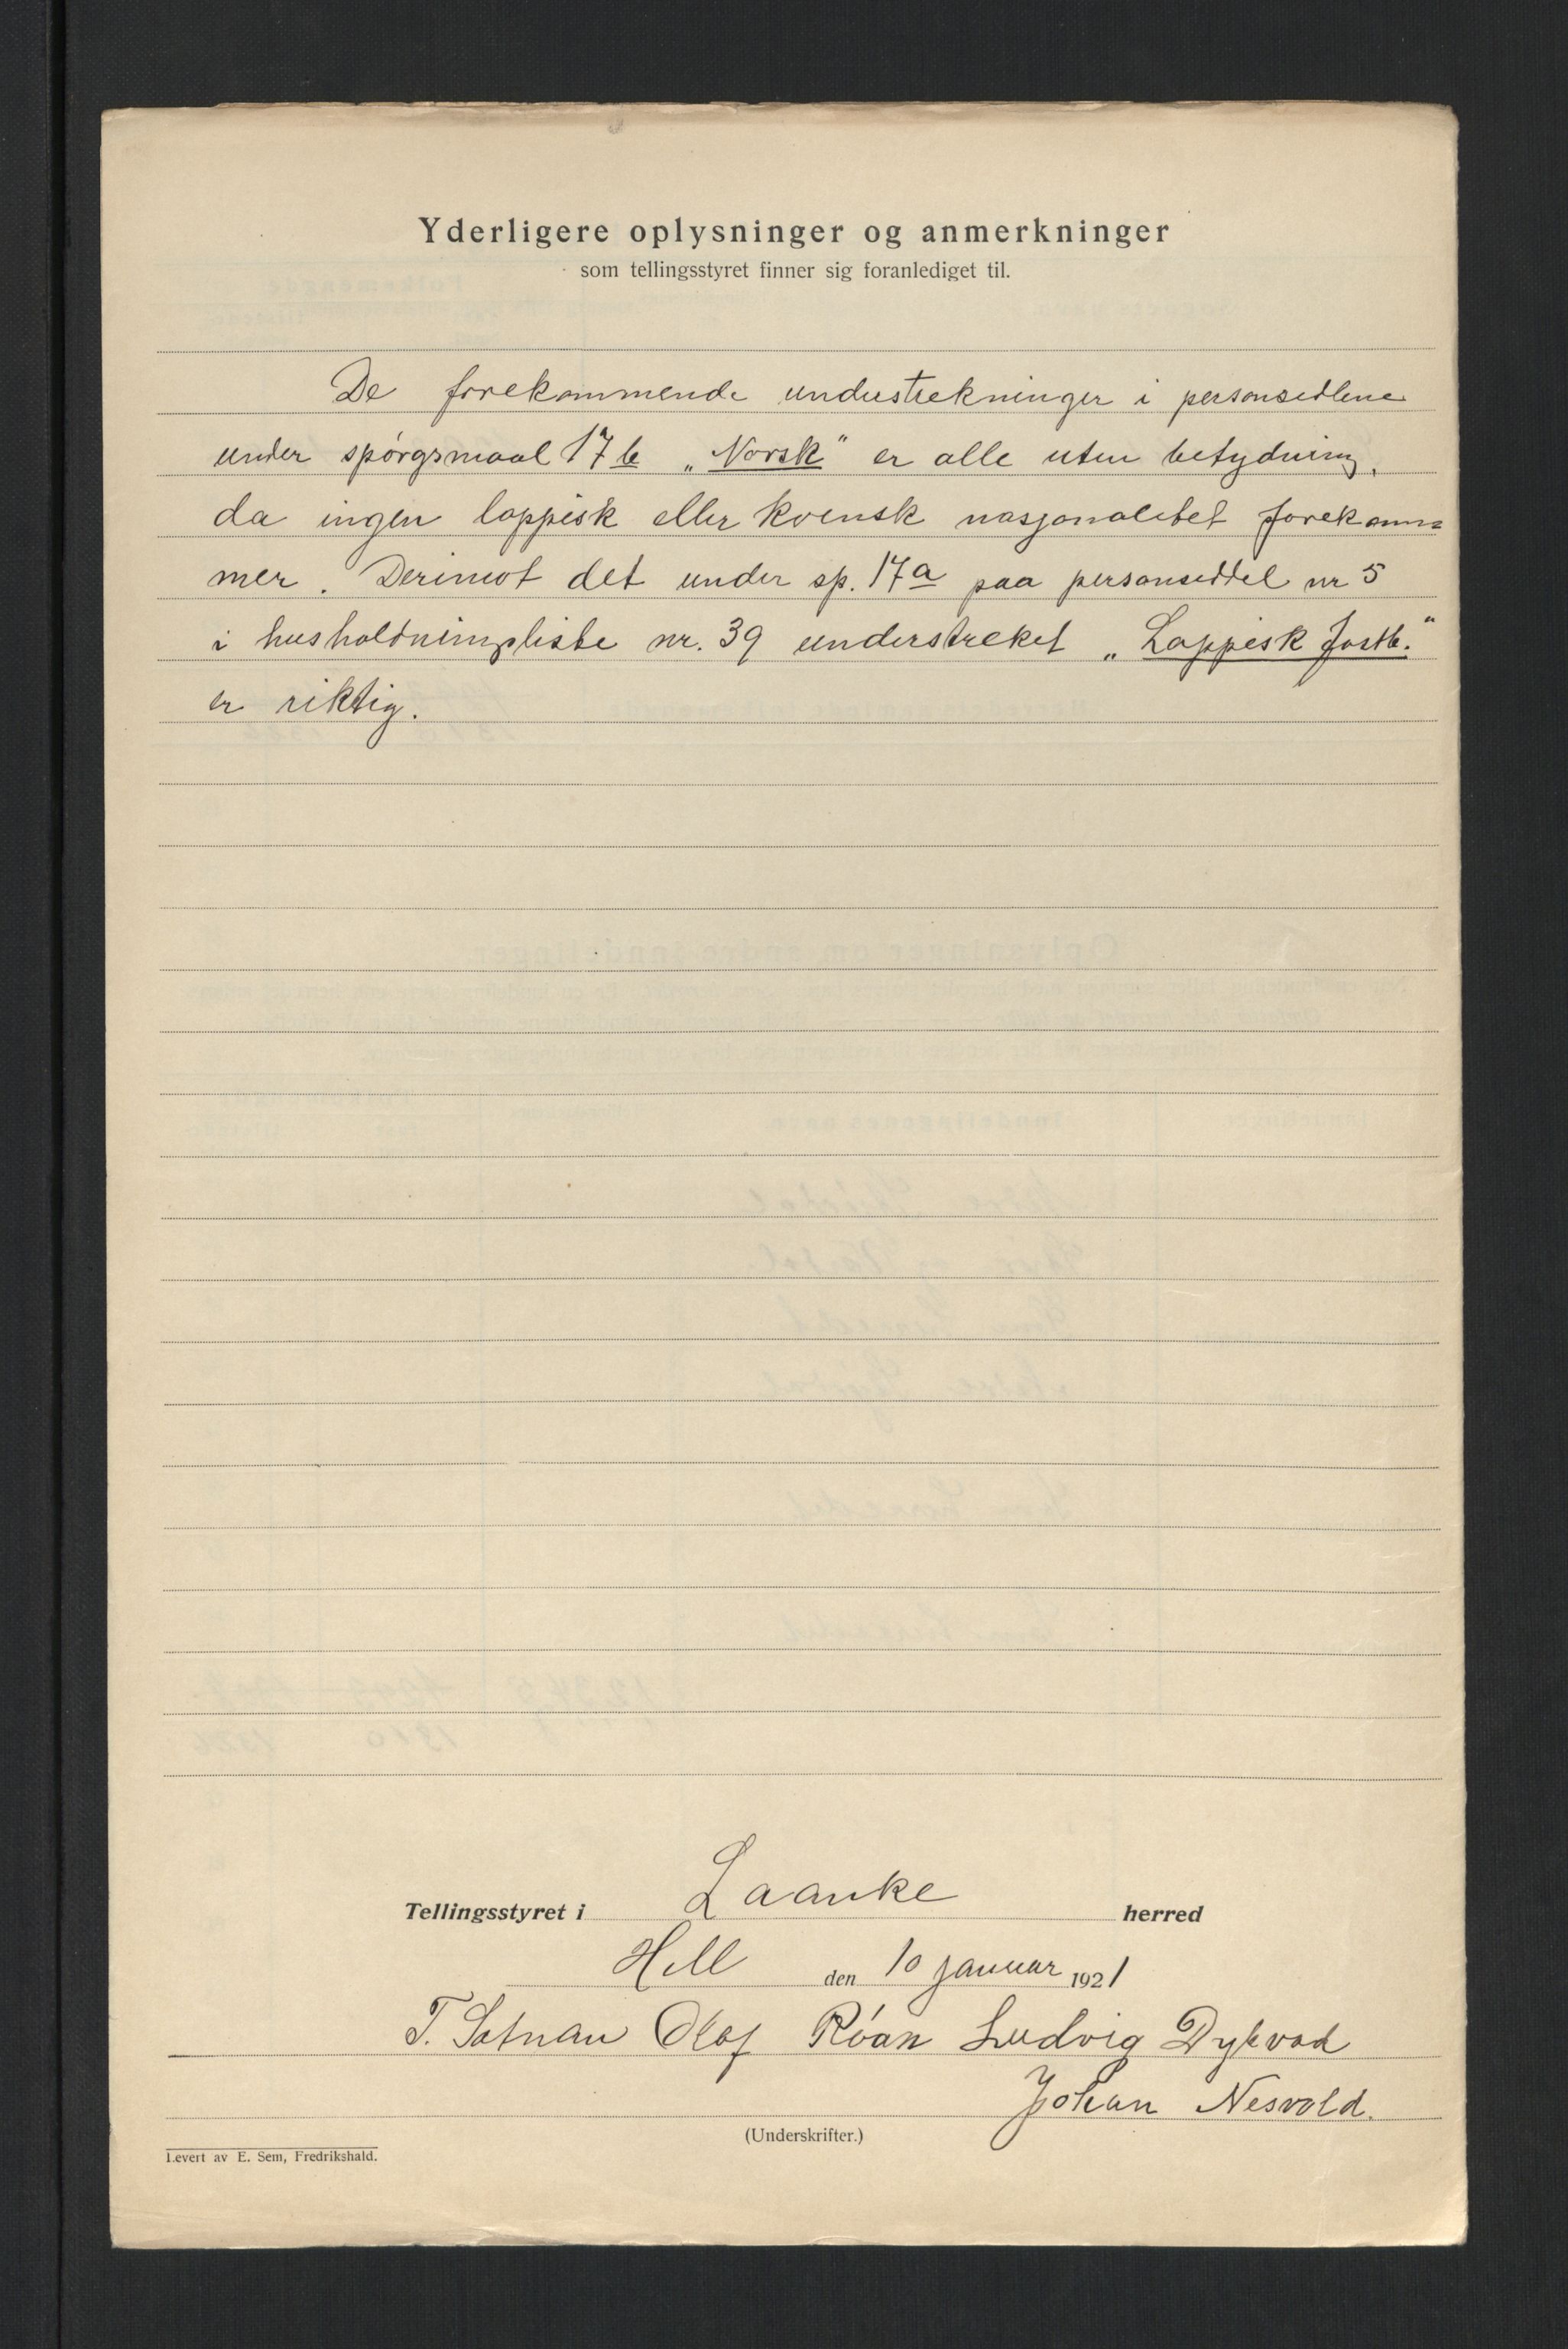 Yderligere oplysninger og anmerkninger
som tellingsstyret finner sig foranlediget til.
De forekommende understrekninger i personsedlene
under spørgsmaal 17 b „Norsk" er alle uten betydning,
da ingen lappisk eller kvensk nasjonalitet forekom=
mer. Derimot det under sp. 17a paa personseddel nr 5
i husholdningsliste nr. 39 understreket „Lappisk
er riktig.
Tellingsstyret i Laanke herred
Hell den 10 januar 1921
T. Olaf Róan Ludvig
Johan Nesvold.
(Underskrifter.)
Levert av E. Sem, Fredrikshald.